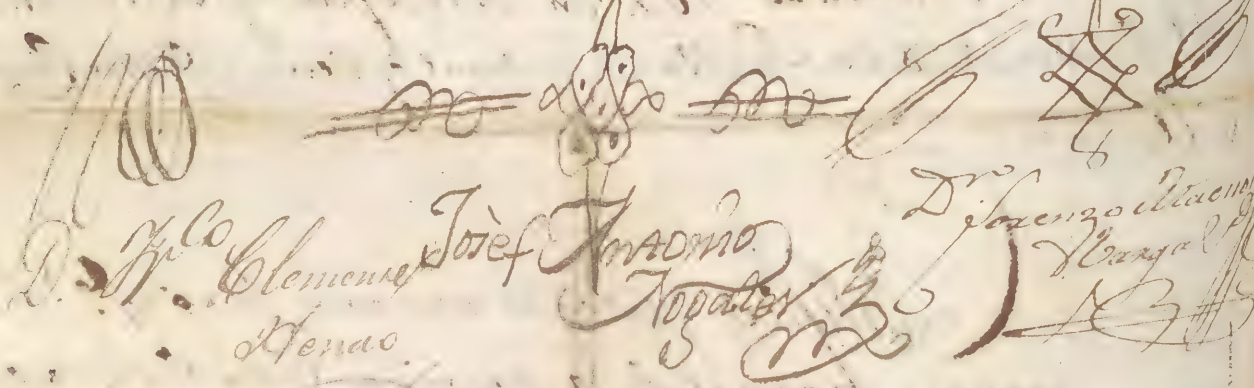 D. Fr.co Clemente
Henao
Josèf Antonio
Nogales
Dro
Lorenzo
Vargas